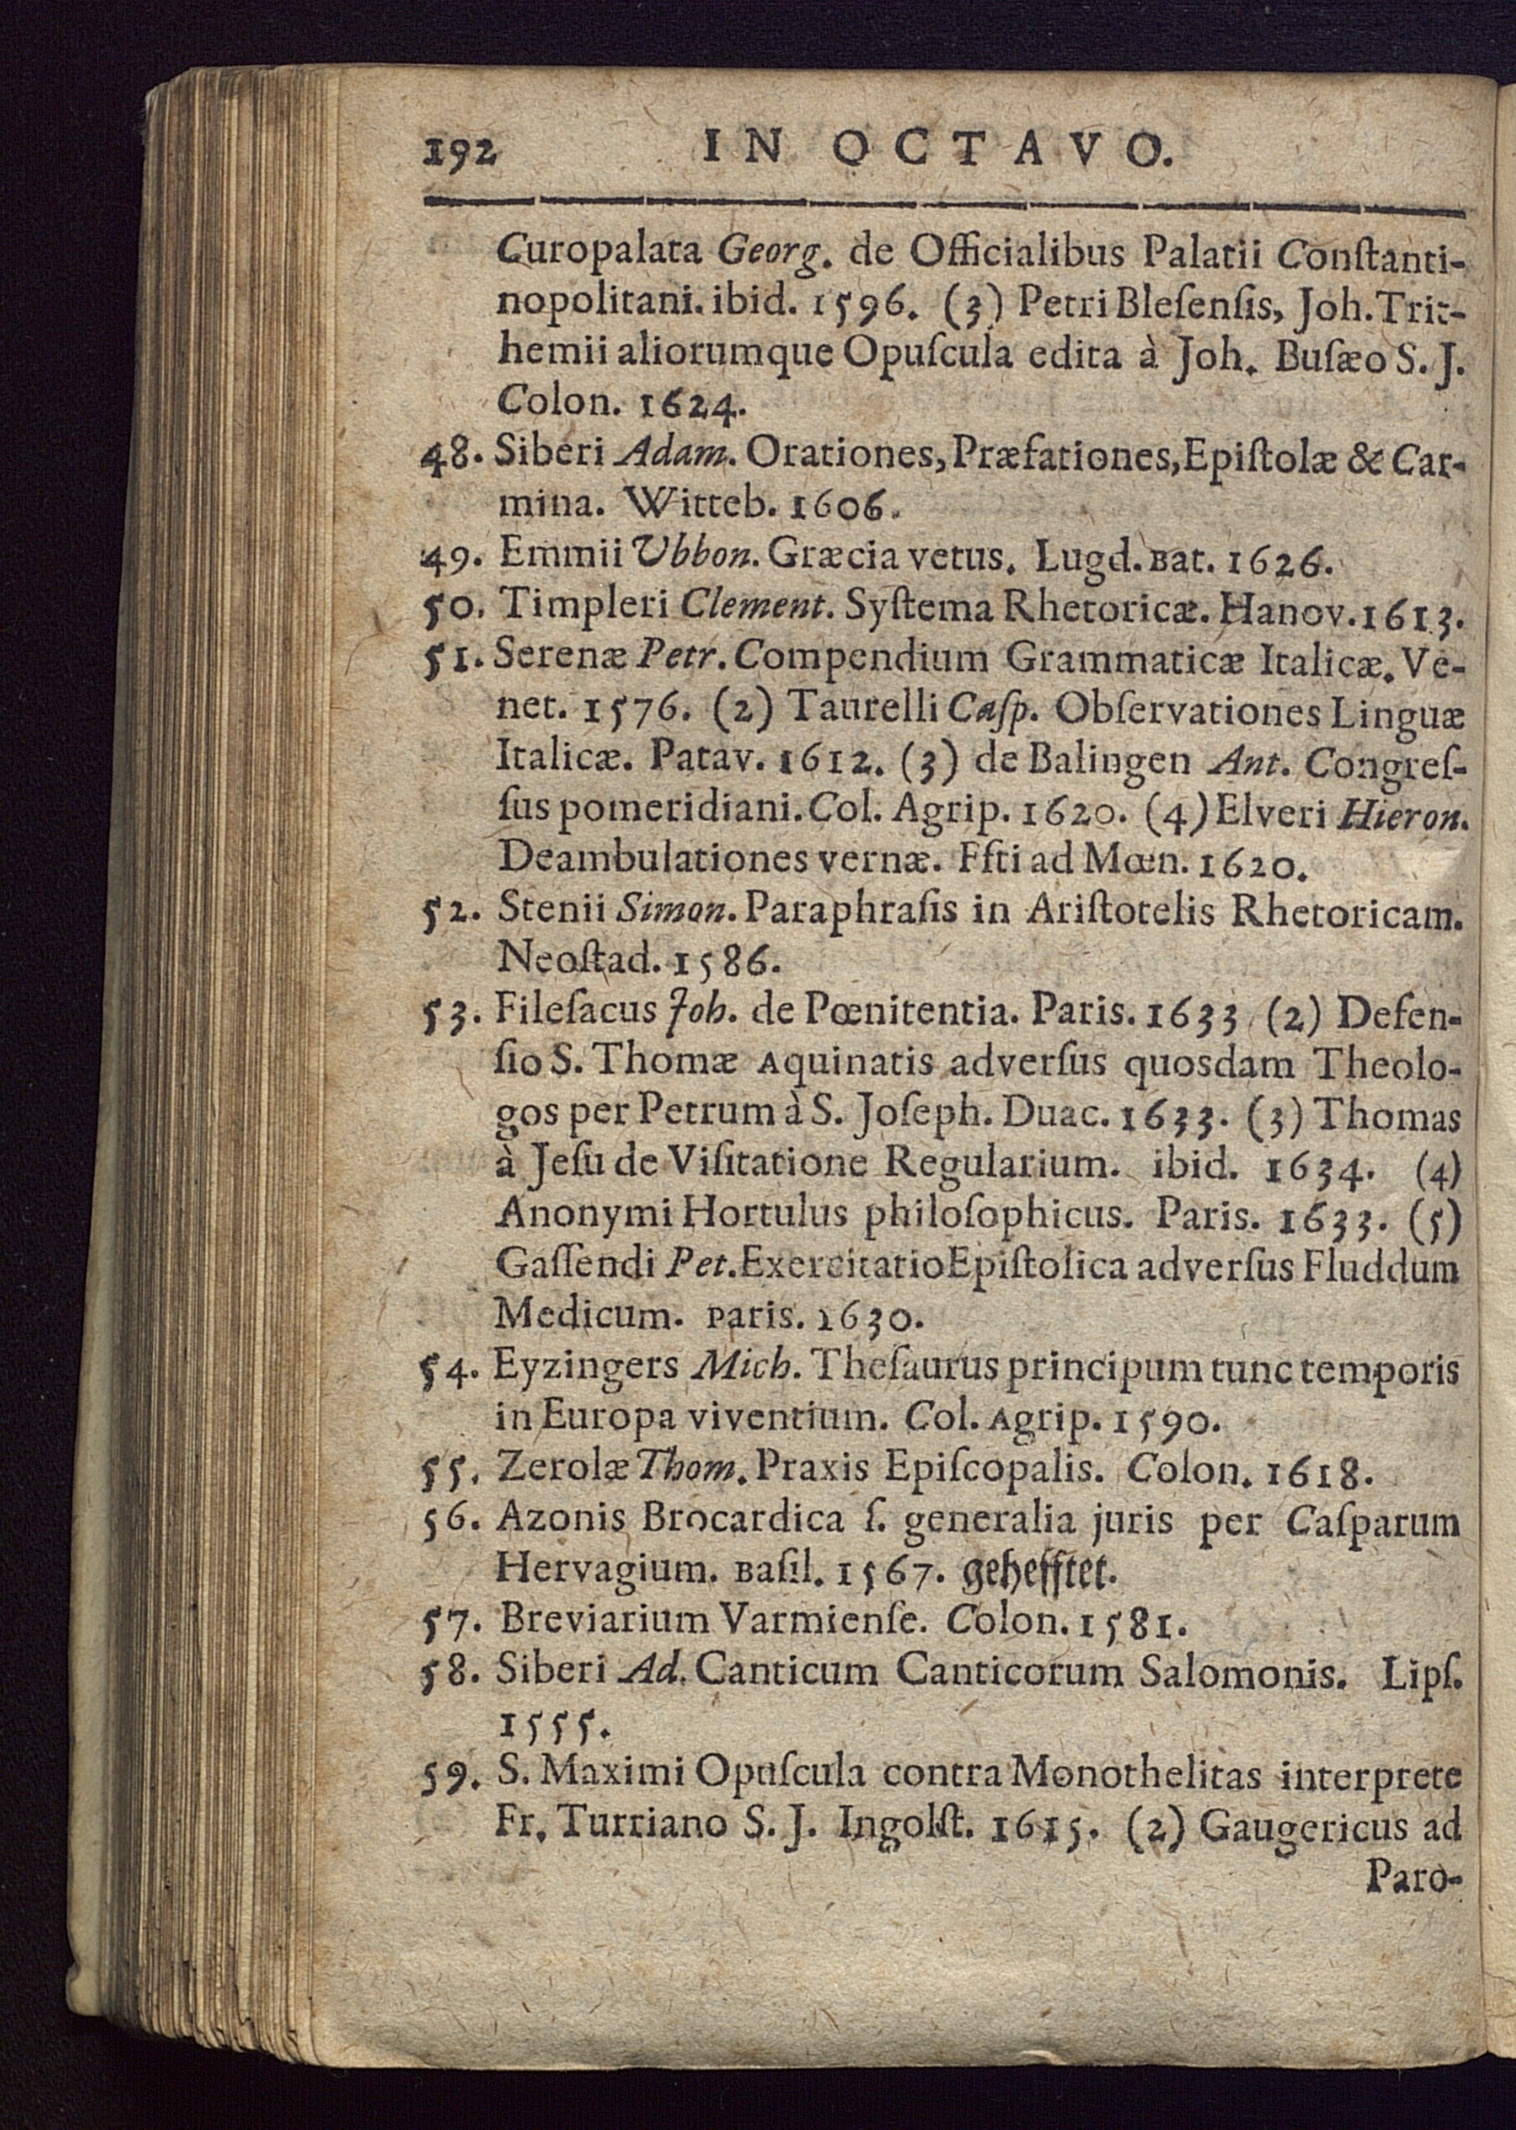 192 IN OCTAVO.
Curopalata Georg. de Officialibus Palatii Conſtanti-
nopolitani. ibid. 1596. (3) Petri Bleſenſis, Joh. Trit-
hemii aliorumque Opuſcula edita à Joh. Buſæo S. J.
Colon. 1624.
48. Siberi Adam. Orationes, Præfationes, Epiſtolæ & Car-
mina. Witteb. 1606.
49. Emmii Ubbon. Græcia vetus. Lugd. Bat. 1626.
50. Timpleri Clement. Syſtema Rhetoricæ. Hanov. 1613.
51. Serenæ Petr. Compendium Grammaticæ Italicæ. Ve-
net. 1576. (2) Taurelli Caſp. Obſervationes Linguæ
Italicæ. Patav. 1612. (3) de Balingen Ant. Congreſ-
ſus pomeridiani. Col. Agrip. 1620. (4) Elveri Hieron.
Deambulationes vernæ. Ffti ad Mœn. 1620.
52. Stenii Simon. Paraphraſis in Ariſtotelis Rhetoricam.
Neoſtad. 1586.
53. Fileſacus Joh. de Pœnitentia. Paris. 1633 (2) Defen-
ſio S. Thomæ Aquinatis adverſus quosdam Theolo-
gos per Petrum à S. Joſeph. Duac. 1633. (3) Thomas
à Jeſu de Viſitatione Regularium. ibid. 1634. (4)
Anonymi Hortulus philoſophicus. Paris. 1633. (5)
Gaſſendi Pet. Exercitatio Epiſtolica adverſus Fluddum
Medicum. Paris. 1630.
54. Eyzingers Mich. Theſaurus principum tunc temporis
in Europa viventium. Col. Agrip. 1590.
55. Zerolæ Thom. Praxis Epiſcopalis. Colon. 1618.
56. Azonis Brocardica ſ. generalia juris per Caſparum
Hervagium. Baſil. 1567. gehefftet.
57. Breviarium Varmienſe. Colon. 1581.
58. Siberi Ad. Canticum Canticorum Salomonis. Lipſ.
1555.
59. S. Maximi Opuſcula contra Monothelitas interprete
Fr. Turriano S. J. Ingolſt. 1615. (2) Gaugericus ad
Paro-